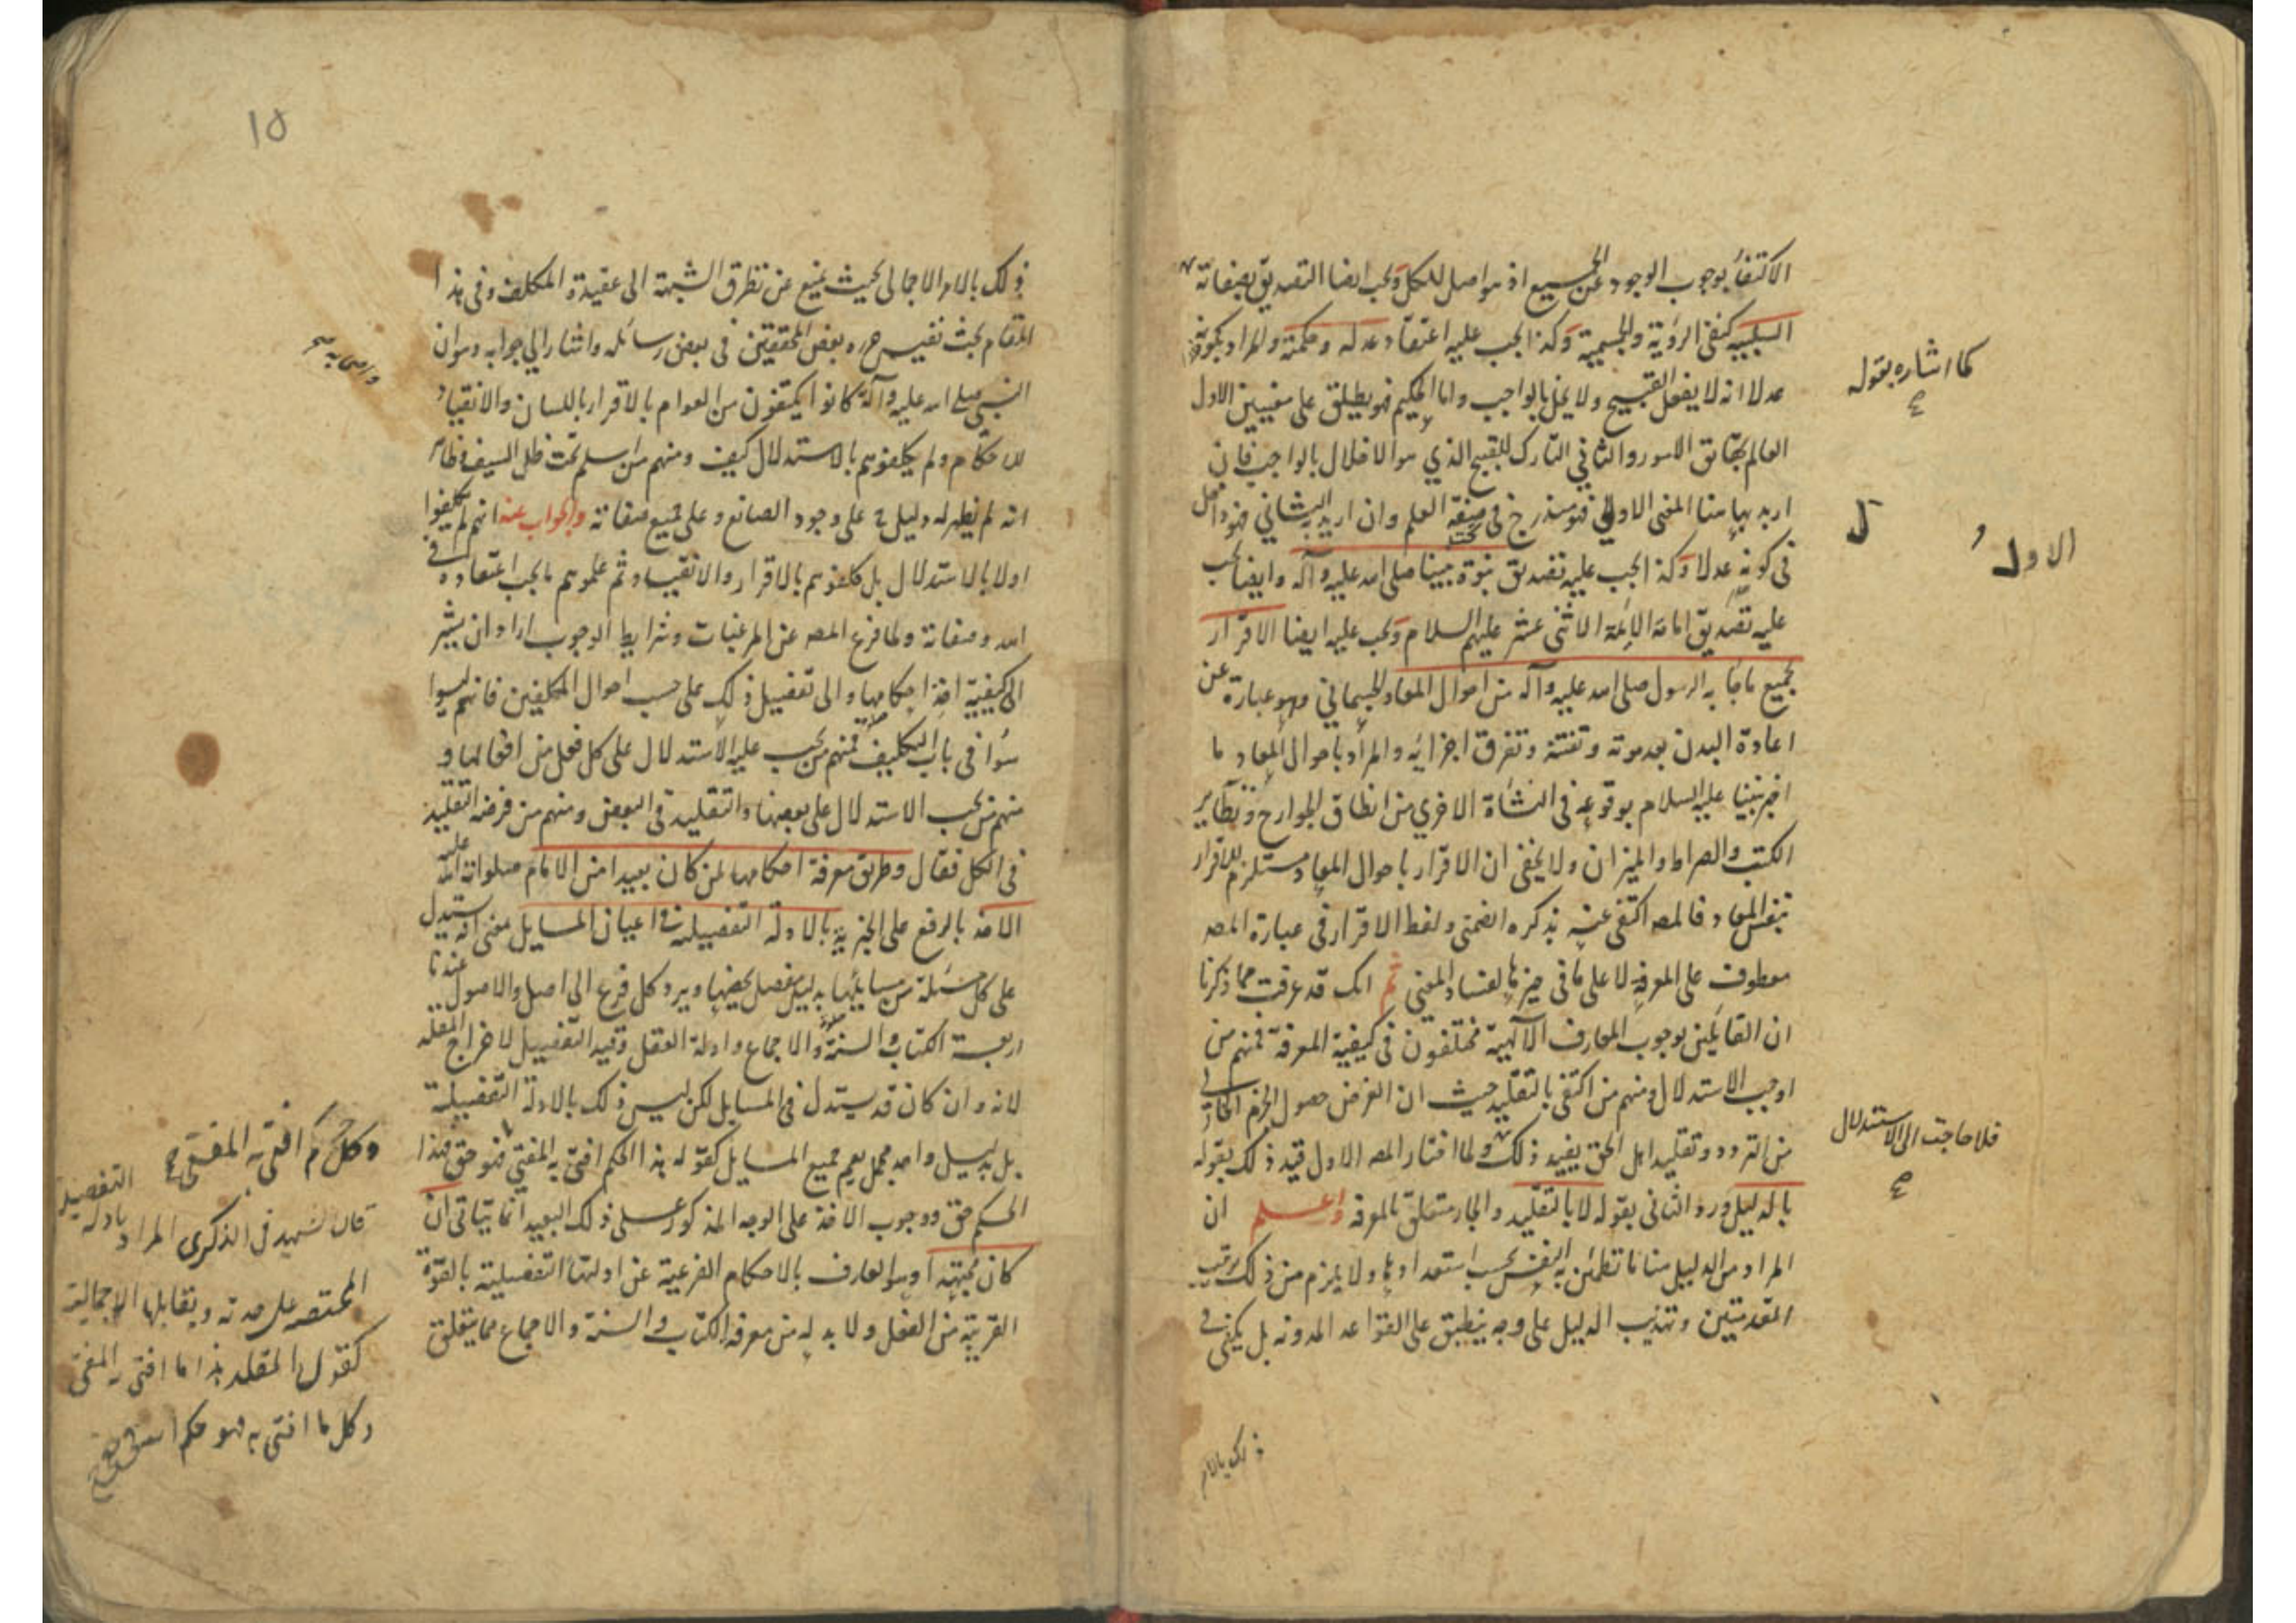 الاكتفاء بوجوب الوجود عن الجميع اذ هو اصل للكل ويجب ايضا التصديق بصفاته
السلبية كنفى الرؤية والجسمية وكذا يجب عليه اعتقاد عدله وحكمته والمراد بكونه
عدلا انه لا يفعل القبيح ولا يخل بالواجب واما الحكيم فهو يطلق على معنيين الاول
العالم بحقائق الامور والثاني التارك للقبيح الذي هو الاخلال بالواجب فان
اريد بها هنا المعنى الاول فهو مندرج في صفة العلم وان اريد الثاني فهو داخل
في كونه عدلا وكذا يجب عليه تصديق نبوة نبينا صلى الله عليه وآله وايضا يجب
عليه تصديق امامة الائمة الاثنى عشر عليهم السلام ويجب عليه ايضا الاقرار
بجميع ما جاء به الرسول صلى الله عليه وآله من احوال المعاد الجسماني وهو عبارة عن
اعادة البدن بعد موته وتفتته وتفرق اجزائه والمراد باحوال المعاد ما
اخبر نبينا عليه السلام بوقوعه في النشأة الاخرى من انطاق الجوارح وتطاير
الكتب والصراط والميزان ولا يخفى ان الاقرار باحوال المعاد مستلزم للاقرار
بنفس المعاد فالمصه اكتفى عنه بذكره الضمنى ولفظ الاقرار في عبارة المصه
معطوف على المعرفة لا على ما في حيزها لفساد المعنى ثم انك قد عرفت مما ذكرنا
ان القائلين بوجوب المعارف الآلهية مختلفون في كيفية المعرفة فمنهم من
اوجب الاستدلال ومنهم من اكتفى بالتقليد حيث ان الغرض حصول الجزم الخالى
من التردد وتقليد اهل الحق يفيد ذلك ولما اختار المصه الاول قيد ذلك بقوله
بالدليل ورد الثانى بقوله لا بالتقليد والجار متعلق بالمعرفة واعلم ان
المراد من الدليل هنا ما تطمئن به النفس بحسب استعدادها ولا يلزم من ذلك ترتيب
المقدمتين وتهذيب الدليل على وجه ينطبق على القواعد المدونه بل يكفى في
ذلك بالامر
كما اشاره بقوله
صح
ل
الاول
فلا حاجت الى الاستدلال
صح
١٥
ذلك بالامر الاجمالى بحيث يمنع عن تطرق الشبهة الى عقيدة المكلف وفى هذا
المقام بحث نفيس حرره بعض المحققين في بعض رسائله واشار الى جوابه وهو ان
النبى صلى الله عليه وآله كانوا يكتفون من العوام بالاقرار باللسان والانقياد
للاحكام ولم يكلفوهم بالاستدلال كيف ومنهم من اسلم تحت ظل السيف وظاهر
انه لم يظهر له دليل على وجود الصانع وعلى جميع صفاته والجواب عنه انهم لم يكلفوا
اولا بالاستدلال بل كلفوهم بالاقرار والانقياد ثم علموهم ما يجب اعتقاده في
الله وصفاته ولما فرغ المصه عن المرغبات وشرايط الوجوب اراد ان يشير
الى كيفية اخذ احكامها والى تفصيل ذلك على حسب احوال المكلفين فانهم ليسوا
سواء في باب التكليف فمنهم من يجب عليه الاستدلال على كل فعل من افعالها و
منهم من يجب الاستدلال على بعضها والتقليد في البعض ومنهم من فرضه التقليد
في الكل فقال وطريق معرفة احكامها لمن كان بعيدا من الامام صلوات الله عليه
الاخذ بالرفع على الخبرية بالادلة التفصيلية في اعيان المسايل معنى انه يستدل
على كل مسئلة من مسايلها بدليل مفصل يخصها ويرد كل فرع الى اصل والاصول عندنا
اربعة الكتاب والسنة والاجماع وادلة العقل وقيد التفصيل لاخراج المقلد
لانه وان كان قد يستدل في المسايل لكن ليس ذلك بالادلة التفصيلية
بل بدليل واحد مجمل يعم جميع المسايل كقوله هذا الحكم افتى به المفتى فهو حق فهذا
الحكم حق ووجوب الاخذ على الوجه المذكور على ذلك البعيد انما يتاتى ان
كان مجتهدا وهو العارف بالاحكام الفرعية عن ادلتها التفصيلية بالقوة
القريبة من الفعل ولا بد له من معرفة الكتاب والسنة والاجماع مما يتعلق
وكل حكم افتى به المفتى صح
قال الشهيد في الذكرى المراد بادلة التفصيل
المختصه على حدته ويقابلها الاجمالية
كقول المقلد هذا ما افتى به المفتى
وكل ما افتى به فهو حكم الله